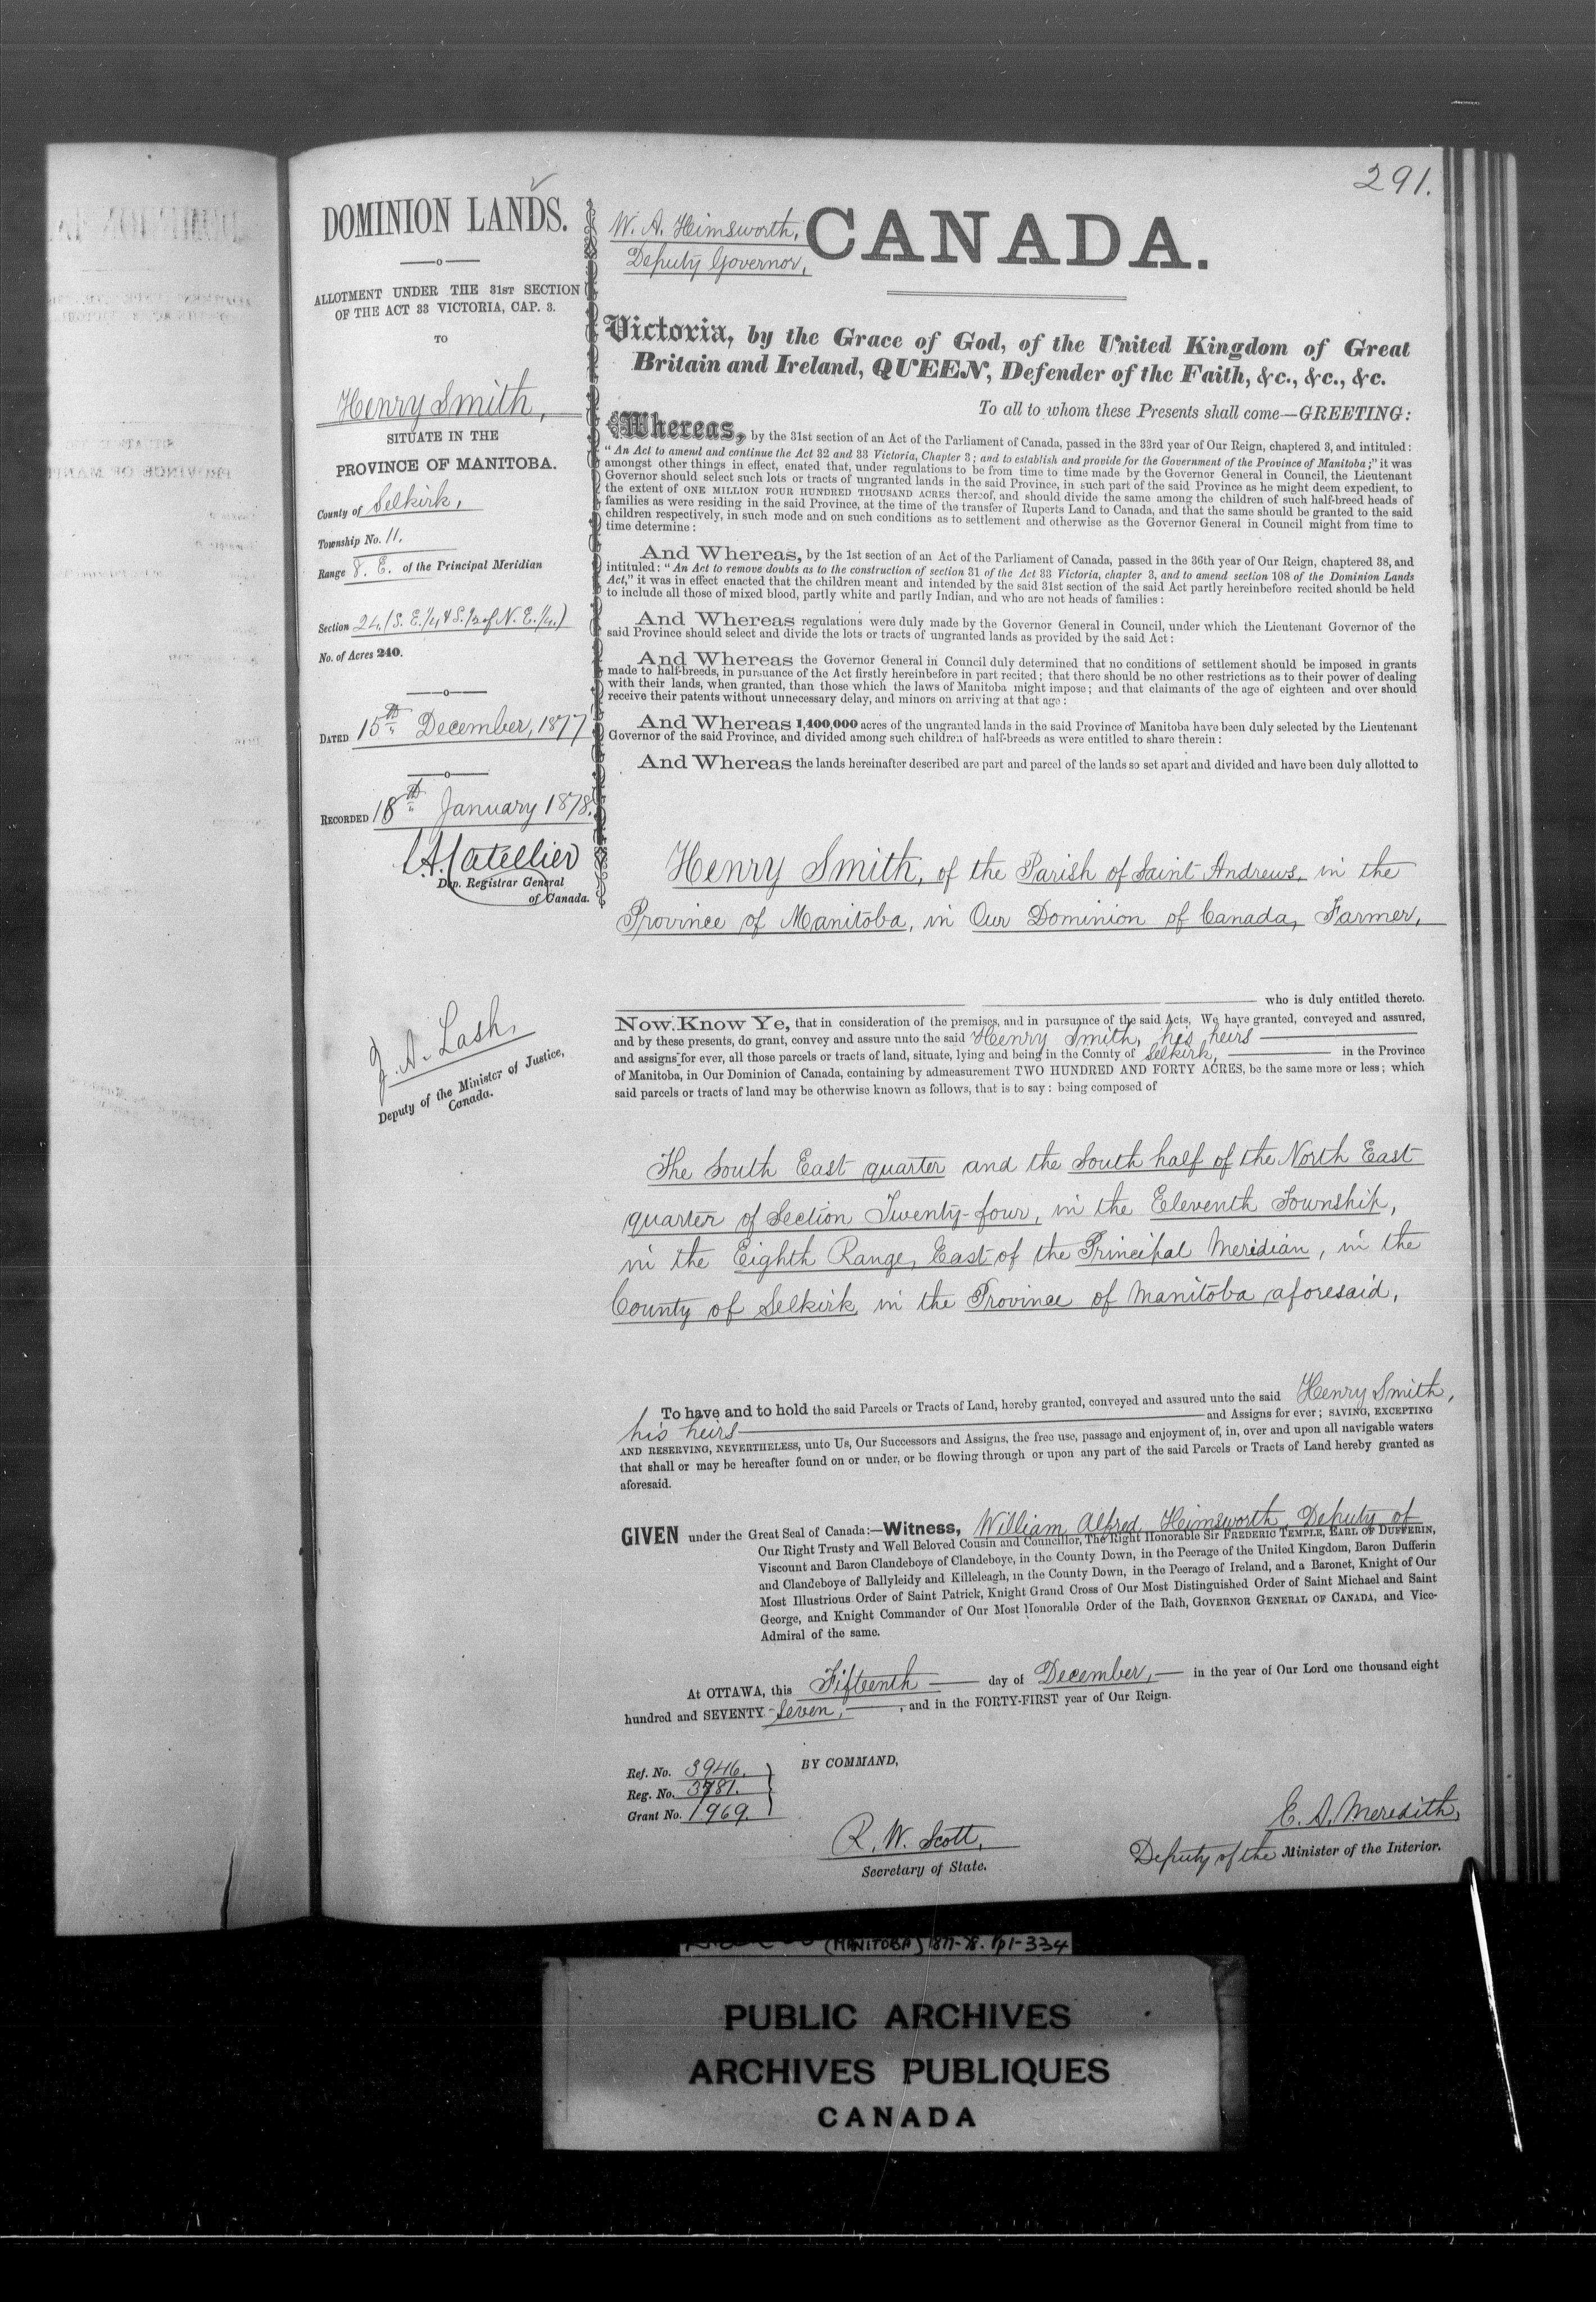 291.
DOMINION LANDS.
ALLOTMENT UNDER THE 31ST SECTION
OF THE ACT 33 VICTORIA, CAP. 3.
TO
Henry Smith,
SITUATE IN THE
PROVINCE OF MANITOBA.
County of Selkirk,
Township No. 11.
Range 8. E. of the Principal Meridian
Section 24. (S. E. 1/4 & S. 1/2 of N. E. 1/4.)
No. of Acres 240.
DATED 15th December, 1877
RECORDED 18th January 1878.
L.A. Catellier
Dep. Registrar General
of Canada.
J. A. Lash,
Deputy of the Minister of Justice,
Canada.
W. A. Heimsworth,
Deputy Governor,
CANADA.
Victoria, by the Grace of God, of the United Kingdom of Great
Britain and Ireland, QUEEN, Defender of the Faith, &c., &c., &c.
To all to whom these Presents shall come—GREETING:
Whereas, by the 31st section of an Act of the Parliament of Canada, passed in the 33rd year of Our Reign, chaptered 3, and intituled:
"An Act to amend and continue the Act 32 and 33 Victoria, Chapter 3; and to establish and provide for the Government of the Province of Manitoba;" it was
amongst other things in effect, enated that, under regulations to be from time to time made by the Governor General in Council, the Lieutenant
Governor should select such lots or tracts of ungranted lands in the said Province, in such part of the said Province as he might deem expedient, to
the extent of ONE MILLION FOUR HUNDRED THOUSAND ACRES thereof, and should divide the same among the children of such half-breed heads of
families as were residing in the said Province, at the time of the transfer of Ruperts Land to Canada, and that the same should be granted to the said
children respectively, in such mode and on such conditions as to settlement and otherwise as the Governor General in Council might from time to
time determine:
And Whereas, by the 1st section of an Act of the Parliament of Canada, passed in the 36th year of Our Reign, chaptered 38, and
intituled: "An Act to remove doubts as to the construction of section 31 of the Act 33 Victoria, chapter 3, and to amend section 108 of the Dominion Lands
Act," it was in effect enacted that the children meant and intended by the said 31st section of the said Act partly hereinbefore recited should be held
to include all those of mixed blood, partly white and partly Indian, and who are not heads of families:
And Whereas regulations were duly made by the Governor General in Council, under which the Lieutenant Governor of the
said Province should select and divide the lots or tracts of ungranted lands as provided by the said Act:
And Whereas the Governor General in Council duly determined that no conditions of settlement should be imposed in grants
made to half-breeds, in pursuance of the Act firstly hereinbefore in part recited; that there should be no other restrictions as to their power of dealing
with their lands, when granted, than those which the laws of Manitoba might impose; and that claimants of the age of eighteen and over should
receive their patents without unnecessary delay, and minors on arriving at that age:
And Whereas 1,400,000 acres of the ungranted lands in the said Province of Manitoba have been duly selected by the Lieutenant
Governor of the said Province, and divided among such children of half-breeds as were entitled to share therein:
And Whereas the lands hereinafter described are part and parcel of the lands so set apart and divided and have been duly allotted to
Henry Smith, of the Parish of Saint Andrews, in the
Province of Manitoba, in Our Dominion of Canada, Farmer,
who is duly entitled thereto.
Now Know Ye, that in consideration of the premises, and in pursuance of the said Acts, We have granted, conveyed and assured,
and by these presents, do grant, convey and assure unto the said Henry Smith, his heirs
and assigns for ever, all those parcels or tracts of land, situate, lying and being in the County of Selkirk, in the Province
of Manitoba, in Our Dominion of Canada, containing by admeasurement TWO HUNDRED AND FORTY ACRES, be the same more or less; which
said parcels or tracts of land may be otherwise known as follows, that is to say: being composed of
The South East quarter and the South half of the North East
quarter of Section Twenty-four, in the Eleventh Township,
in the Eighth Range, East of the Principal Meridian, in the
County of Selkirk in the Province of Manitoba aforesaid,
To have and to hold the said Parcels or Tracts of Land, hereby granted, conveyed and assured unto the said Henry Smith,
his heirs and Assigns for ever; SAVING, EXCEPTING
AND RESERVING, NEVERTHELESS, unto Us, Our Successors and Assigns, the free use, passage and enjoyment of, in, over and upon all navigable waters
that shall or may be hereafter found on or under, or be flowing through or upon any part of the said Parcels or Tracts of Land hereby granted as
aforesaid.
GIVEN under the Great Seal of Canada:—Witness, William Alfred Heimsworth, Deputy of
Our Right Trusty and Well Beloved Cousin and Councillor, The Right Honorable Sir FREDERIC TEMPLE, EARL OF DUFFERIN,
Viscount and Baron Clandeboye of Clandeboye, in the County Down, in the Peerage of the United Kingdom, Baron Dufferin
and Clandeboye of Ballyleidy and Killeleagh, in the County Down, in the Peerage of Ireland, and a Baronet, Knight of Our
Most Illustrious Order of Saint Patrick, Knight Grand Cross of Our Most Distinguished Order of Saint Michael and Saint
George, and Knight Commander of Our Most Honorable Order of the Bath, GOVERNOR GENERAL OF CANADA, and Vice-
Admiral of the same.
At OTTAWA, this Fifteenth day of December, in the year of Our Lord one thousand eight
hundred and SEVENTY-Seven, and in the FORTY-FIRST year of Our Reign.
Ref. No. 3946.
Reg. No. 3781.
Grant No. 1969.
BY COMMAND,
R. W. Scott,
Secretary of State.
E. A. Meredith,
Deputy of the Minister of the Interior.
(MANITOBA) 1877-78. pp1-334
PUBLIC ARCHIVES
ARCHIVES PUBLIQUES
CANADA